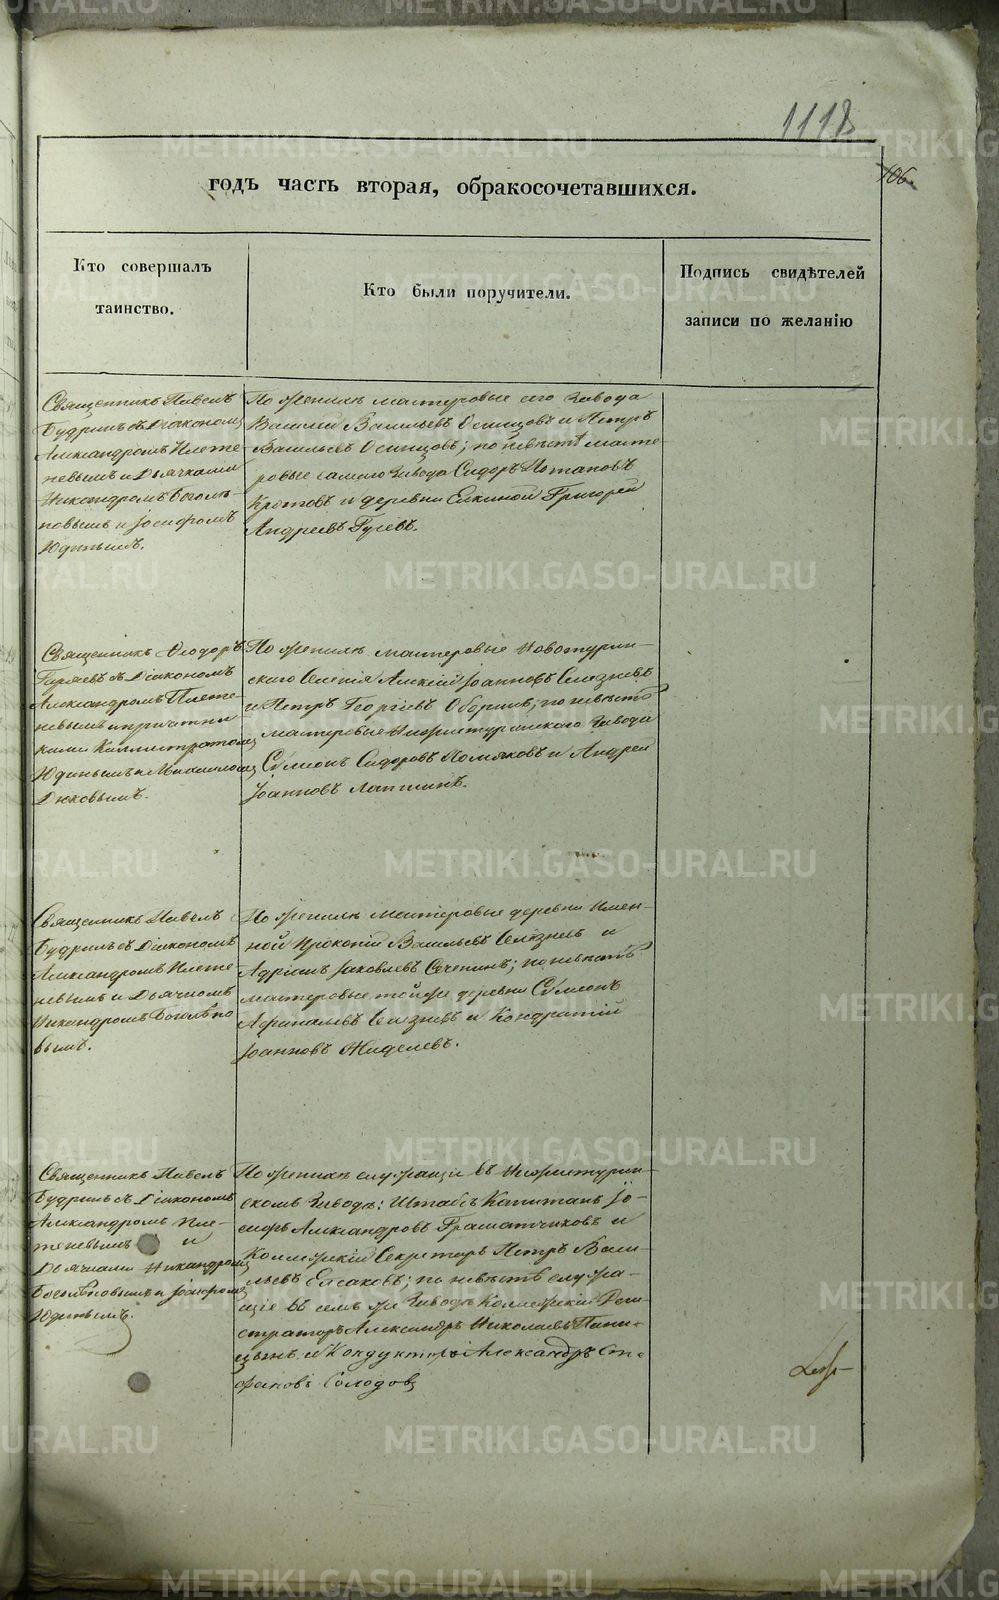 1118
106.
годъ часть вторая, обракосочетавшихся.
Кто совершалъ
таинство.
Кто были поручители.
Подпись свидѣтелей
записи по желанію
Священникъ Павелъ
Будринъ съ Діакономъ
Александромъ Плете-
невымъ и Дьячками
Никандромъ Боголѣ-
повымъ и Іосифомъ
Юдинымъ.
По женихѣ мастеровые сего Завода
Василій Васильевъ Осинцовъ и Петръ
Васильевъ Осинцовъ; по невѣстѣ масте
ровые самаго Завода Сидоръ Потаповъ
Кротовъ и деревни Елкиной Григорей
Андреевъ Гусевъ.
Священникъ Ѳеодоръ
съ Діакономъ
Александромъ Плете-
невымъ и причетни
ками Каллистратомъ
Юдинымъ и Михаиломъ
Дюковымъ.
По женихѣ мастеровые Новотурин-
скаго Селенія Алексій Іоанновъ Селезневъ
и Петръ Георгіевъ Оборинъ; по невѣстѣ
мастеровые Нижнетуринскаго Завода
Сѵмеонъ Сидоровъ Поляковъ и Андрей
Іоанновъ Лапшинъ.
Священникъ Павелъ
Будринъ съ Діакономъ
Александромъ Плете
невымъ и Дьячкомъ
Никандромъ Боголѣпо
вымъ.
По женихѣ мастеровые деревни Имен-
ной Прокопій Васильевъ Селезневъ и
Адріанъ Іаковлевъ; по невѣстѣ
мастеровые той же деревни Сѵмеонъ
Афанасьевъ Селезневъ и Кондратій
Іоанновъ Жиделевъ.
Священникъ Павелъ
Будринъ съ Діакономъ
Александромъ Пле-
теневымъ и
Дьячками Никандромъ
Боголѣповымъ и Іосифомъ
Юдинымъ.
По женихѣ служащіе въ Нижнетурин-
скомъ Заводѣ: Штабсъ Капитанъ Іо-
сифъ Александровъ Граматчиковъ и
Коллежскій Секретарь Петръ Васи-
льевъ Елсаковъ; по невѣстѣ служа-
щіе въ семъ же Заводѣ Коллежскій Реги
страторъ Александръ Николаевъ
и Кондукторъ Александръ Сте
фановъ Солодовъ
METRIKI.GASO-URAL.RU